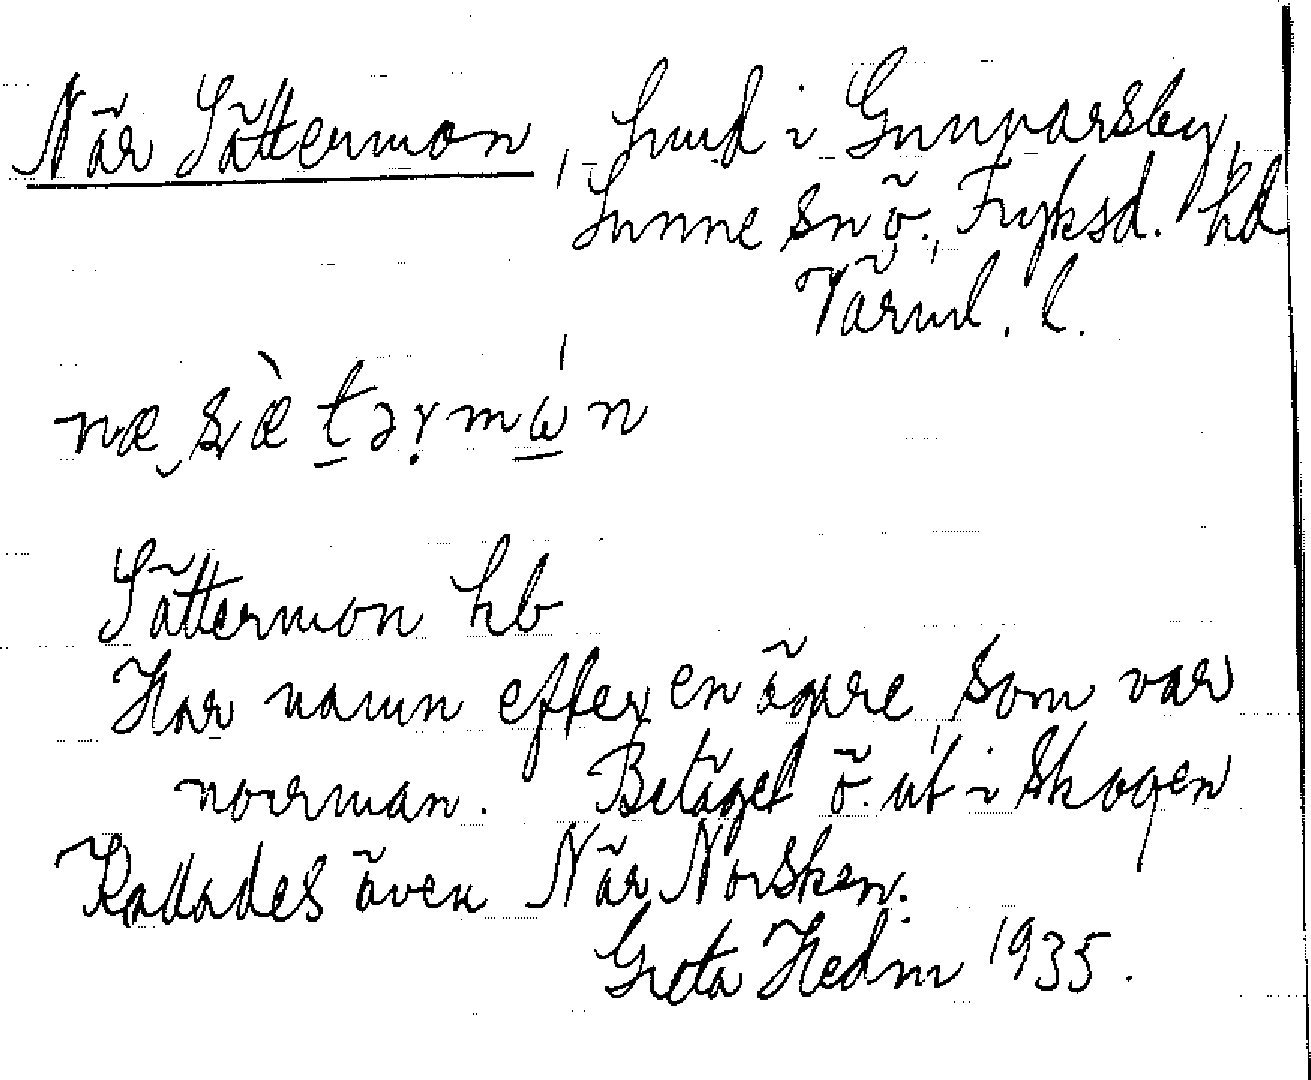 När Sättermon, hmd i Gunnarsby,
Sunne sn ö., Fryksd. hd
Värml. l.
næ sæ̀ tərmώn
Sättermon hb
Har namn efter en ägare, som var
norrman. Beläget ö. ut i skogen
Kallades även När Norsken.
Greta Hedin 1935.